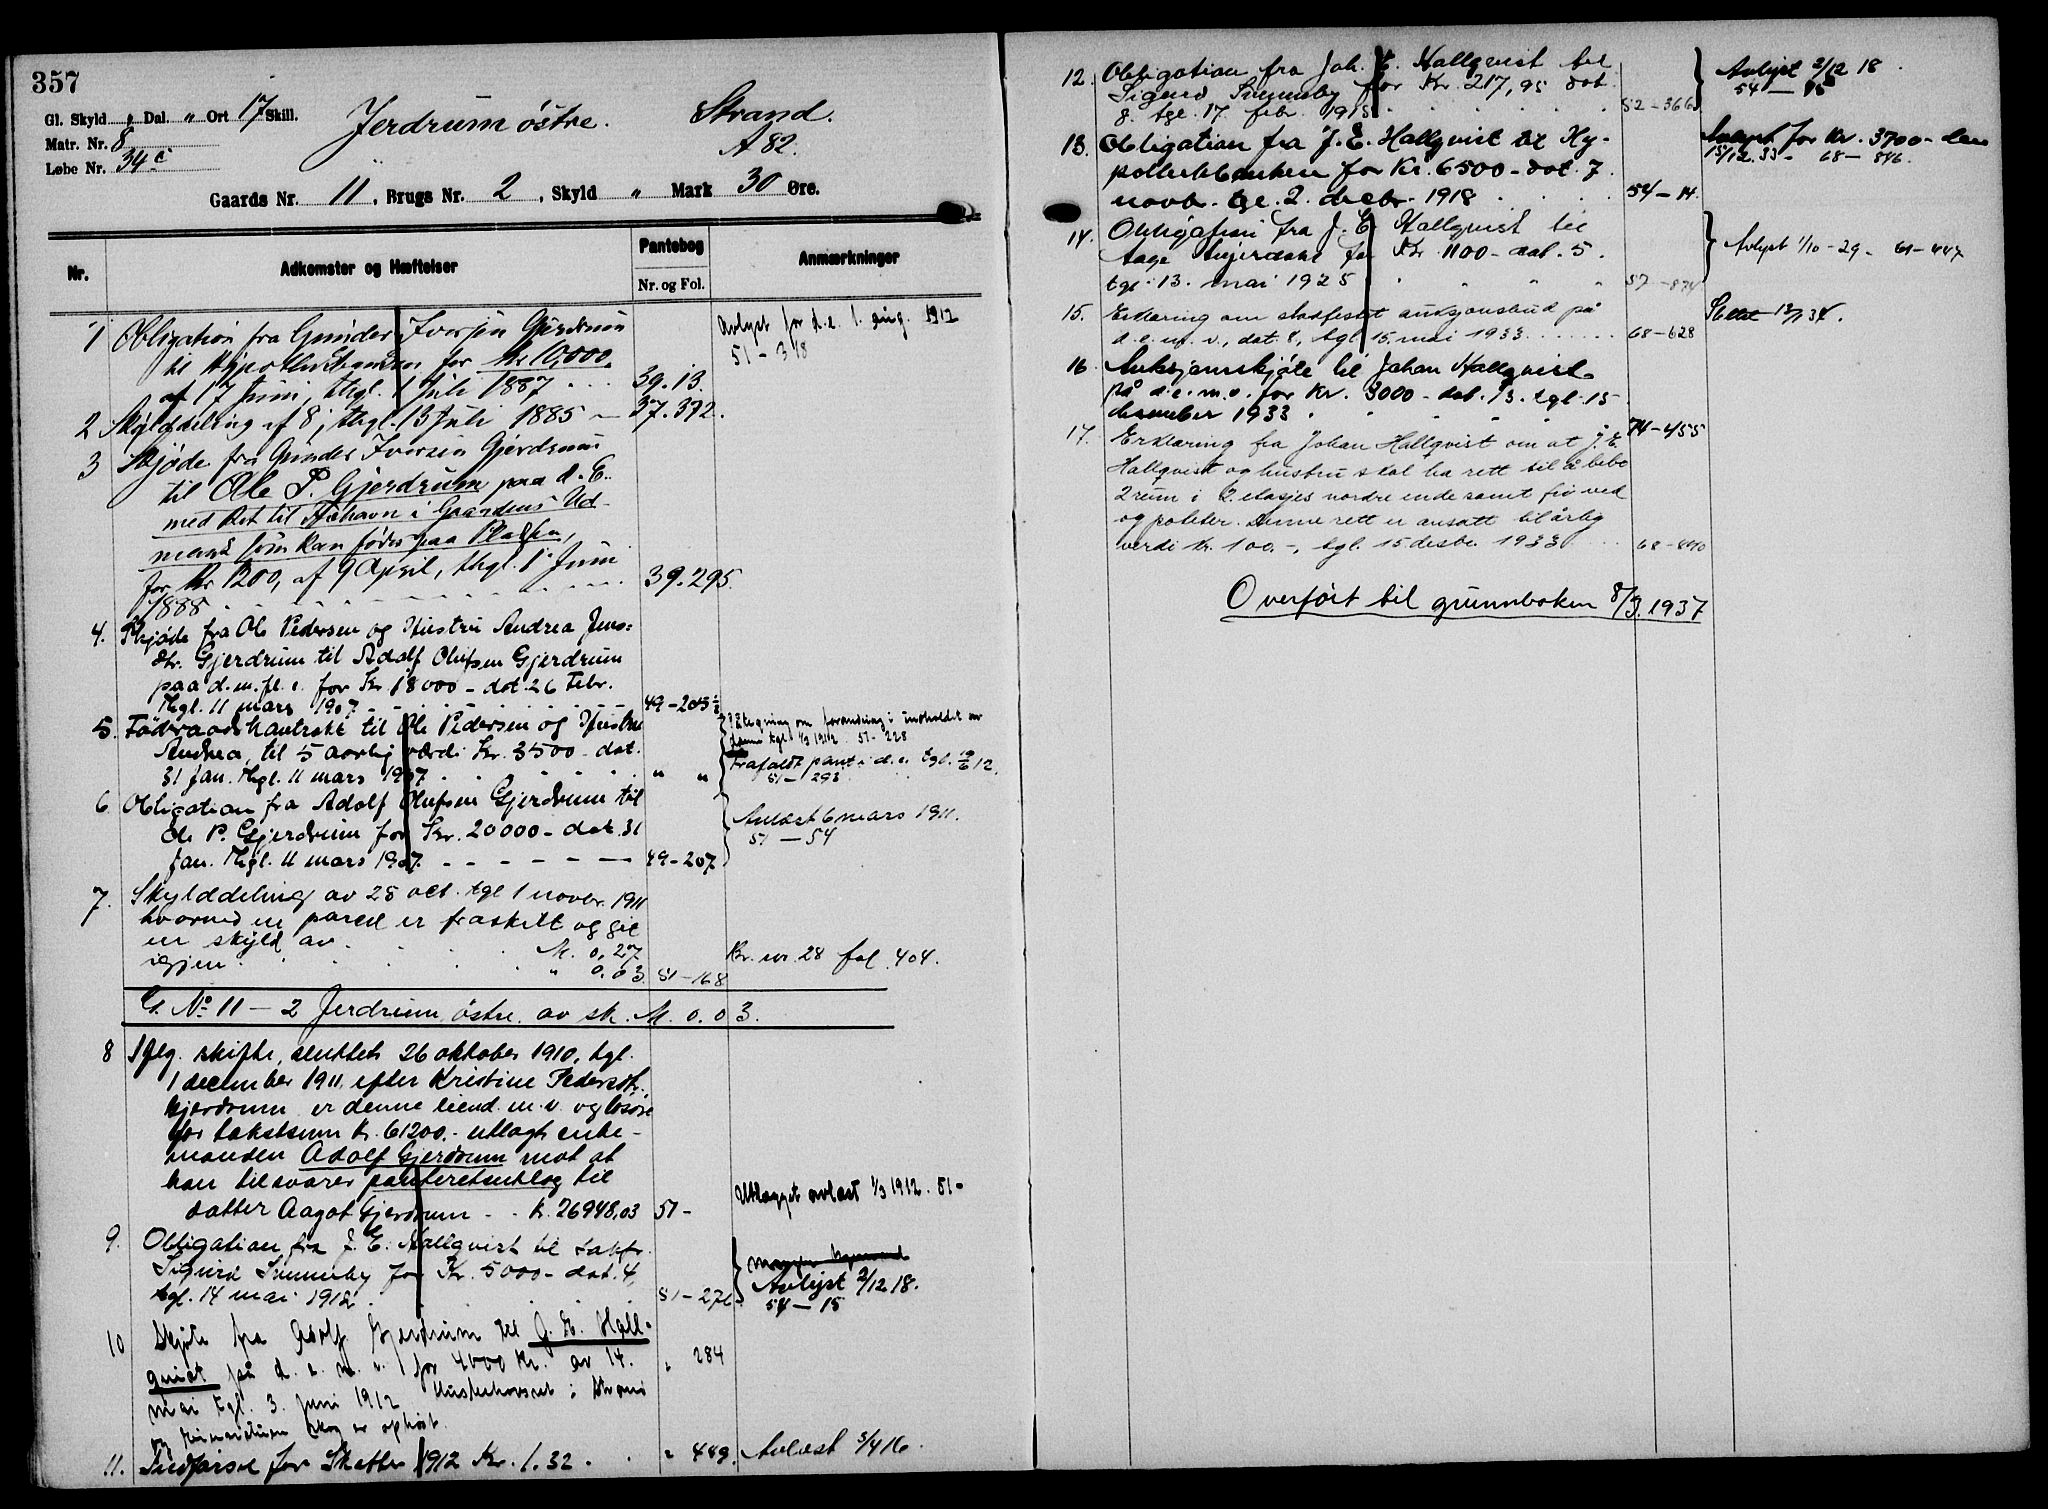 357
Gl. Skyld „ Dal. „ Ort 17 Skill.
Matr. Nr. 8
Løbe Nr. 34 c
Jerdrum østre. Strand.
A 82.
Gaards Nr. 11, Brugs Nr. 2, Skyld „ Mark 30 Øre.
Nr. Adkomster og Hæftelser Pantebog Anmærkninger
Nr. og Fol.
1 Obligation fra Gunder Iversen Gjerdrum
til Hypothekbanken for Kr 10,000.
af 17 Juni, thgl. 1 Juli 1887 39.13.
Avlyst for d.e. 1. aug. 1912
51 - 318
2 Skylddeling af 8, thgl. 13 Juli 1885 - 37.372.
3 Skjøde fra Gunder Iversen Gjerdrum
til Ole P. Gjerdrum paa d. E.
med Ret til Havn i Gaardens Ud-
mark som kan fødes paa Pladsen,
for Kr 1200, af 9 April, thgl. 1 Juni
1888 39.295.
4. Skjøde fra Ole Pedersen og Hustru Andrea Jens:
dtr. Gjerdrum til Adolf Olufsen Gjerdrum
paa d. m. fl. e. for Kr. 18000 - dat. 26 Febr.
Thgl. 11 mars 1907. 49-205½
5. Føderaadskontrakt til Ole Pedersen og Hustru
Andrea, til 5 aarlig værdi Kr. 3500 - dat.
31 Jan. Thgl. 11 mars 1907 „ „
Paategning om forandring i indholdet av
denne tgl. 1/3 1912 51-228
Frafaldt pant i d. e. tgl. 19/6 12.
51 - 293
6. Obligation fra Adolf Olufsen Gjerdrum til
Ole P. Gjerdrum for Kr. 20000 - dat. 31
Jan. Thgl. 11 mars 1907. - - - - - - - 49-207
Avlæst 6 mars 1911.
51 - 54
7. Skylddeling av 28 oct. tgl 1 novbr. 1911
hvorved en parcel er fraskilt og git
en skyld av M. 0,27
igjen " 0.03 51-168
Br. nr. 28 fol. 404.
G. No 11 - 2 Jerdrum østre av sk. M. 0.03.
8 Iflg. skifte, sluttet 26 oktober 1910, tgl.
1 december 1911 efter Kristine Pedersdtr.
Gjerdrum er denne eiend. m. v. og løsøre
for takstsum Kr. 61200.- utlagt enke-
manden Adolf Gjerdrum mot at
han tilsvarer panteretsutlæg til
datter Aagot Gjerdrum - - Kr. 26948,03 51-
Utlægget avlæst 1/3 1912. 51-
9. Obligation fra J. E. Hallqvist til sakfr.
Sigurd Smuneby for Kr. 5000 - dat. 4,
tgl. 14 mai 1912. 51-276
Avlyst 2/12 18.
54 - 15
10 Skjøte fra Adolf Gjerdrum til J. E. Hall-
quist på d. e. m. v. for 4000 Kr. av 14.
mai tgl. 3. juni 1912 Husbehovsret i Strand
og skog er ophørt. „ 284
11. Indførsel for Skatter 1912 Kr. 1.32. „ 449. Avlæst 3/4 16.
12. Obligation fra Joh. E. Hallqvist til
Sigurd Smuneby for Kr. 217,95 dat.
8. tgl. 17. febr. 1915 52-366
Avlyst 2/12 18.
54 - 15
13. Obligation fra J. E. Hallqvist til Hy-
pothekbanken for Kr. 6500 - dat. 7.
novbr. tgl. 2. decbr. 1918 54-14.
Avlyst for Kr. 3700 - den
15/12. 33 - 68 - 846.
14. Obligation fra J. E. Hallqvist til
Aage for Kr 1100 - dat. 5.
tgl. 13. mai 1925 57-874
Avlyst 1/10 - 29 - 61-447
15. Erklæring om stadfestet auksjonsbud på
d. e. m. v., dat. 8, tgl. 15. mai 1933 68-628
Slettet 34.
16. Auksjonsskjøte til Johan Hallqvist
på d. e. m. v. for Kr. 3000 - dat. 13. tgl. 15
desember 1933 74-455
17. Erklæring fra Johan Hallqvist om at J. E.
Hallqvist og hustru skal ha rett til å bebo
2 rum i 2. etasjes nordre ende samt fri ved
og poteter. Denne rett er ansatt til årlig
verdi Kr. 100.-, tgl. 15 desbr. 1933 68-840
Overført til grunnboken 8/3.1937